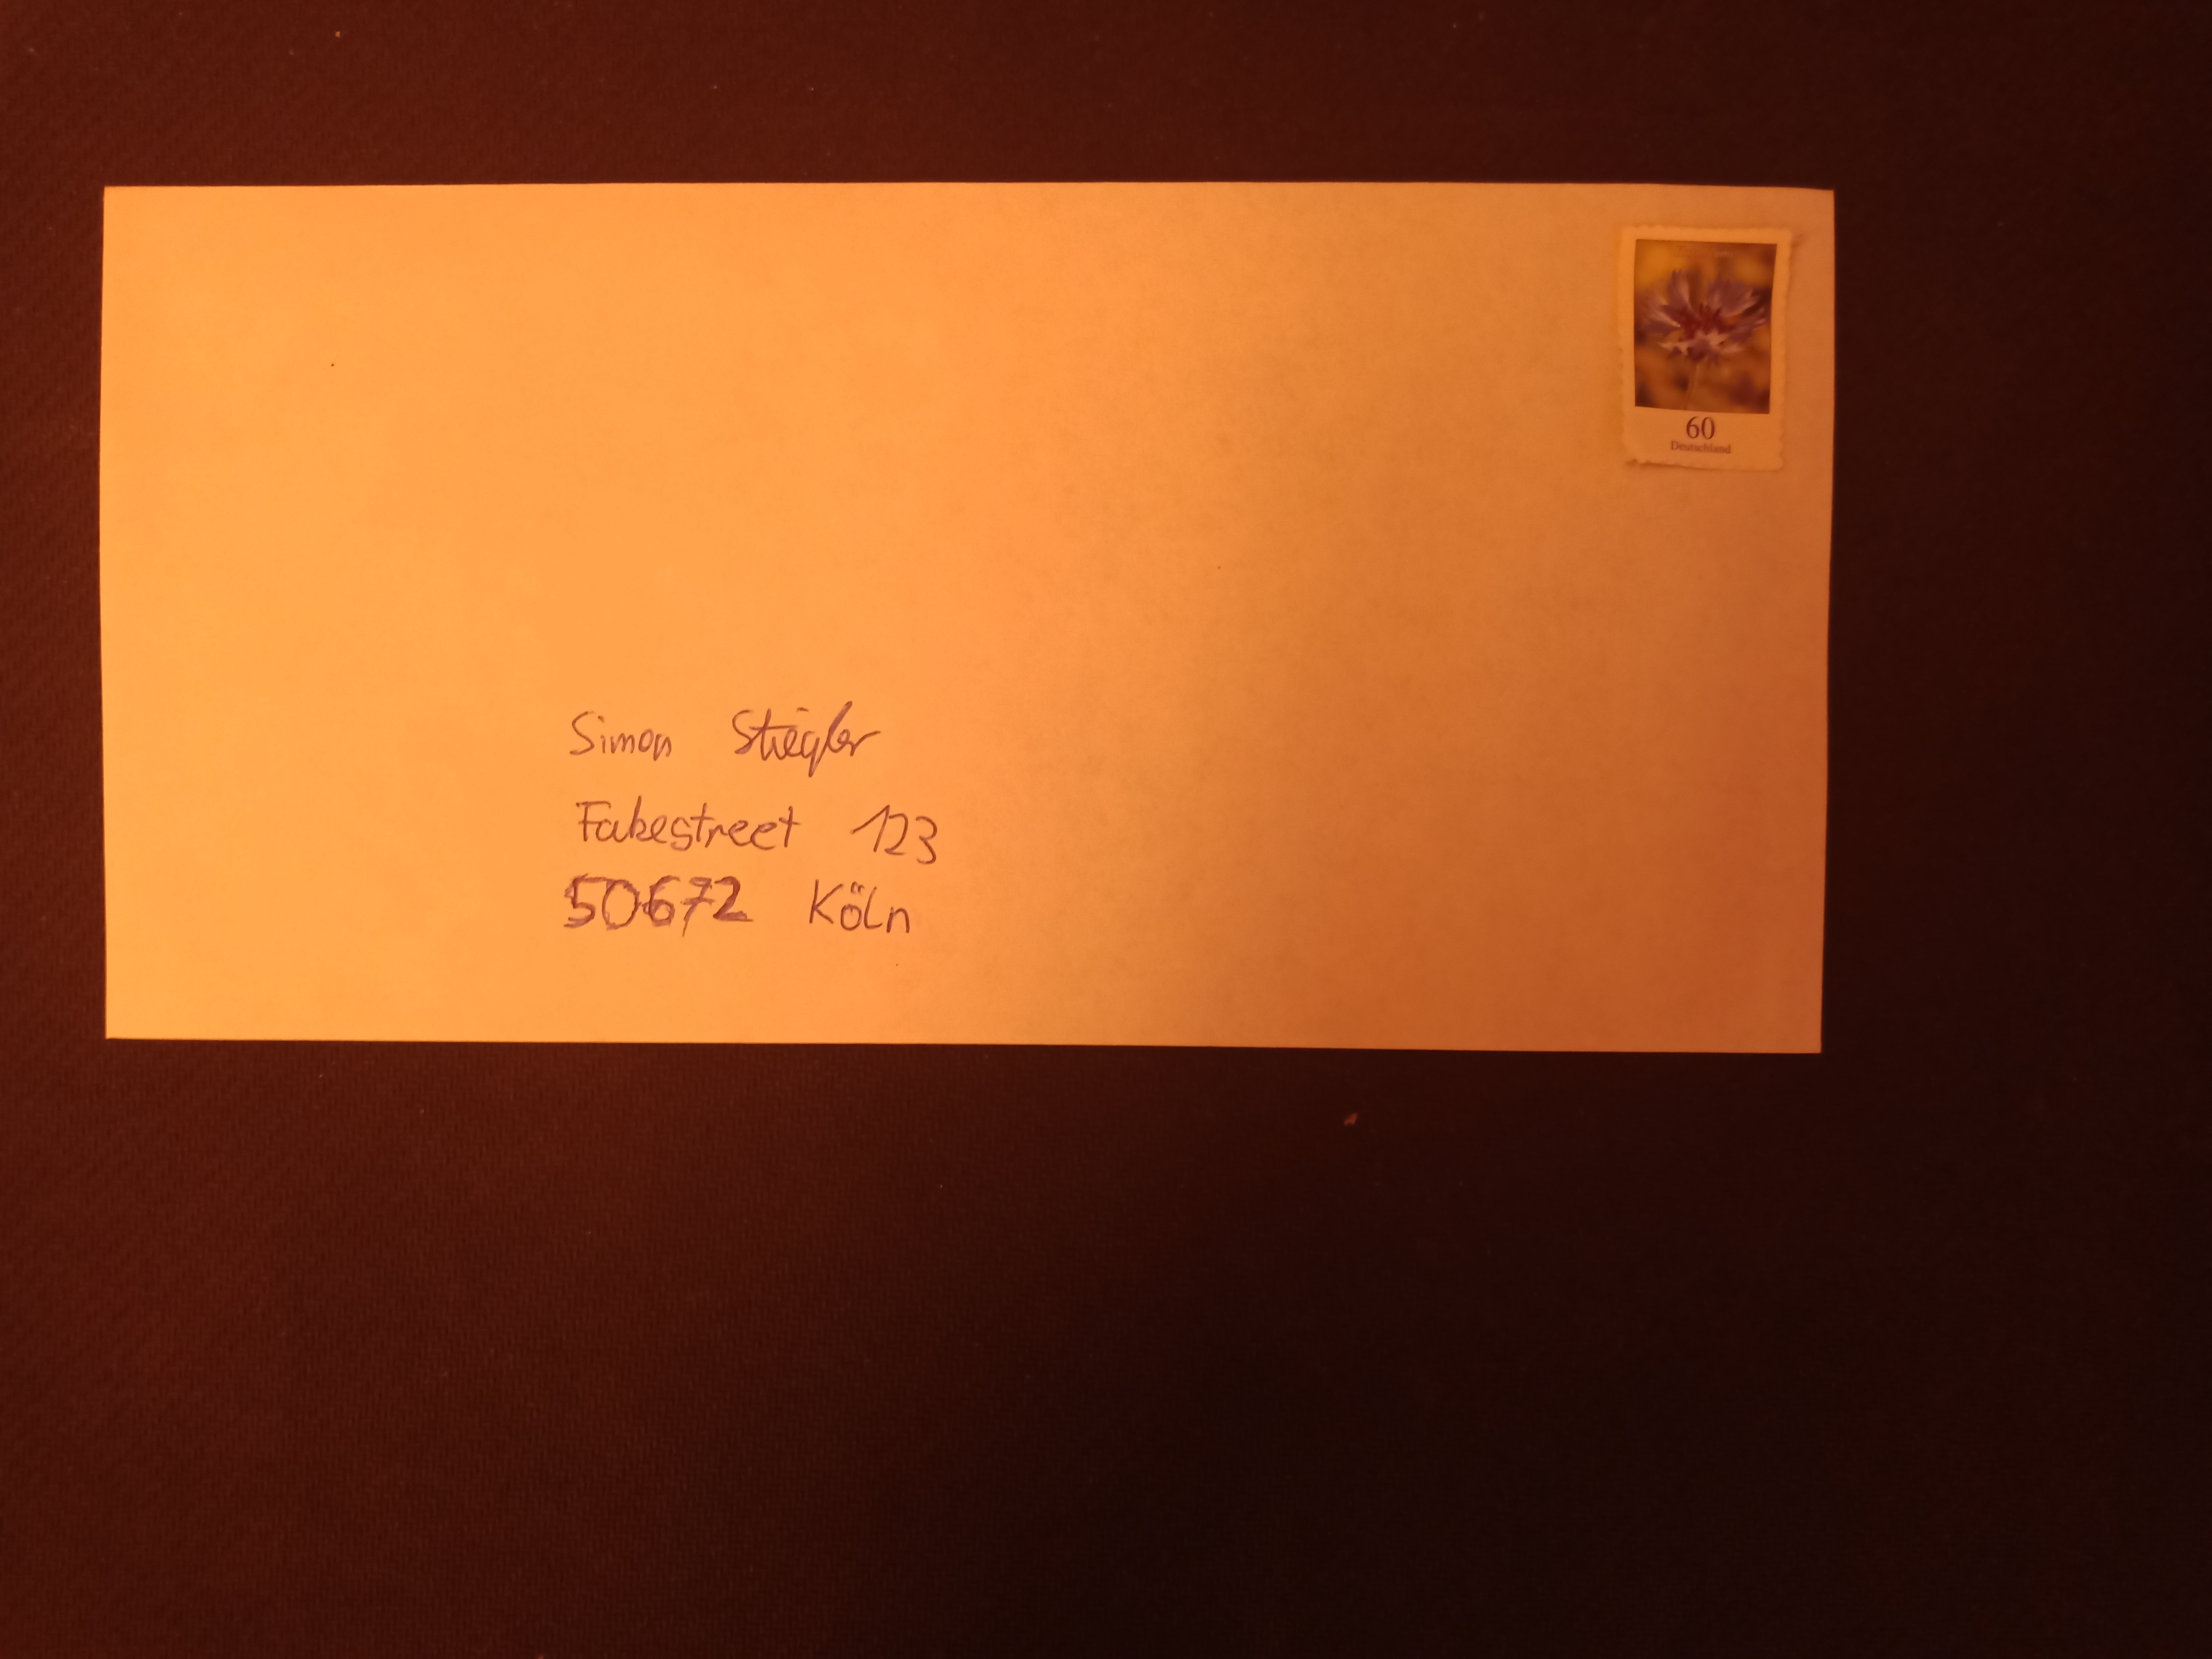 60
Deutschland
Simon Stiegler
Fakestreet 123
50672 Köln